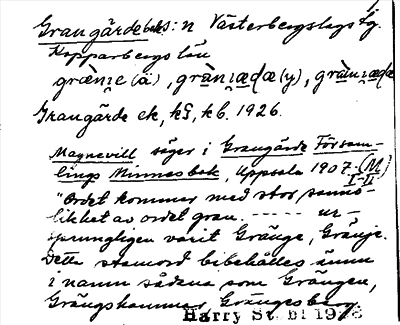 Grangärdebs: n Västerbergslags tg.
Kopparbergs län
græ̀ni̯e (ä), græ̀ni̯æḍæ (y), græ̀ni̯æḍæ
Grangärde ek, kb. 1926.
Magnevill säger i Grangärde Försam-
lings Minnesbok, Uppsala 1907. (M
I-II
"Ordet kommer med stor sanno-
likhet av ordet gran. ----- ur-
sprungligen varit Gränge, Gränje.
Detta stamord bibehålles ännu
i namn sådana som Grängen,
Grängshammar, Grängesberg.
Harry St. bl 1926